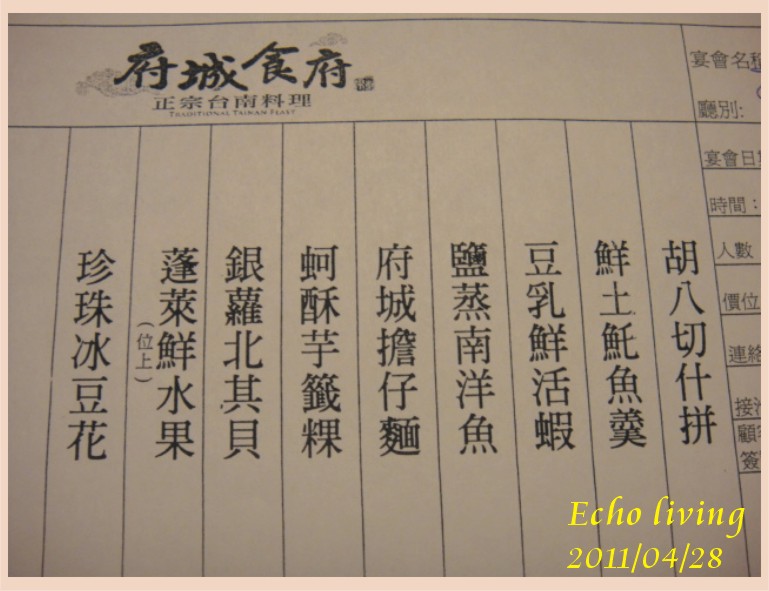 府城食府
正宗台南料理
TRADITIONAL TAINAN FEAST
宴會名稱
廳別:
宴會日期
時間：
人數
價位
連絡
接洽
顧客
簽
胡八切什拼
鮮土魠魚羹
豆乳鮮活蝦
鹽蒸南洋魚
府城擔仔麵
蚵酥芋籤粿
銀蘿北其貝
蓬萊鮮水果
(位上)
珍珠冰豆花
Echo living
2011/04/28